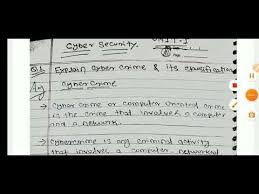 UNIT-I
Cyber Security.
Page
Q.1 Explain cyber crime & its classification
Ans Cyber Crime
→ Cyber crime or computer oriented crime
is the crime that involves a computer
and a network.
→ Cybercrime is any criminal activity
that involve a computer, networked